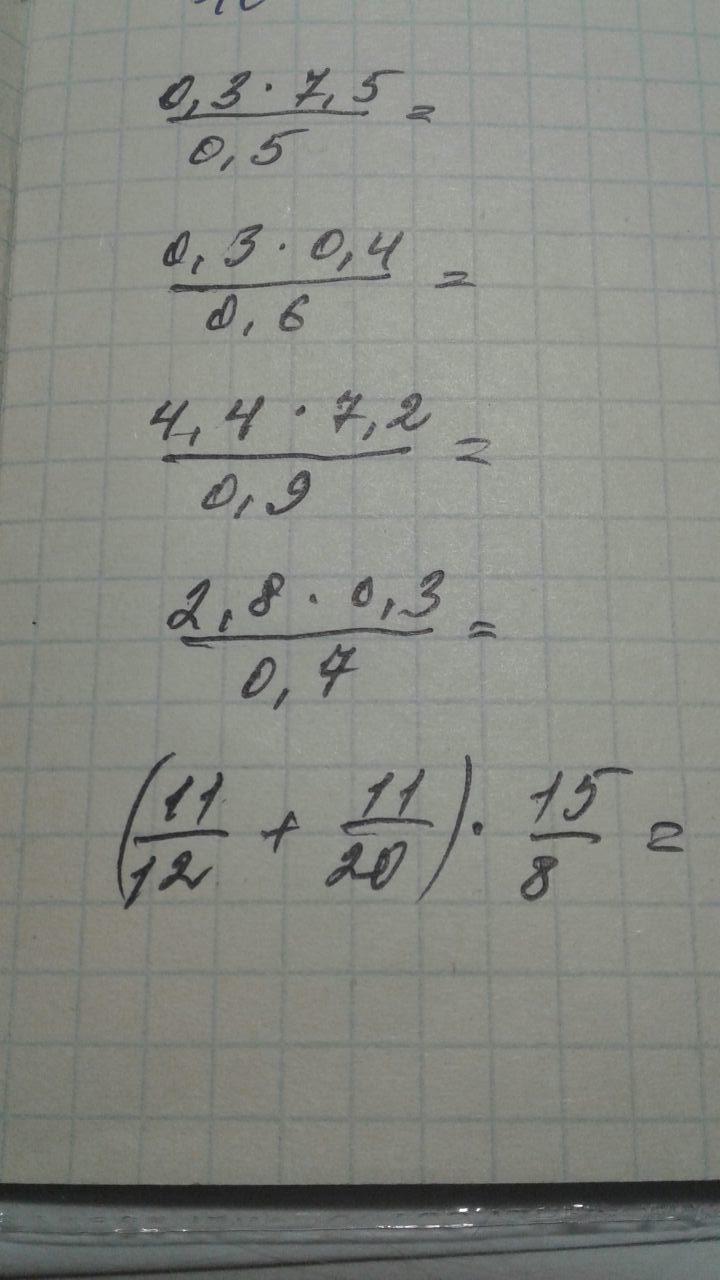 0,3 · 7,5 =
0,5
0,3 · 0,4 =
0,6
4,4 · 7,2 =
0,9
2,8 · 0,3 =
0,7
(11/12 + 11/20) · 15/8 =